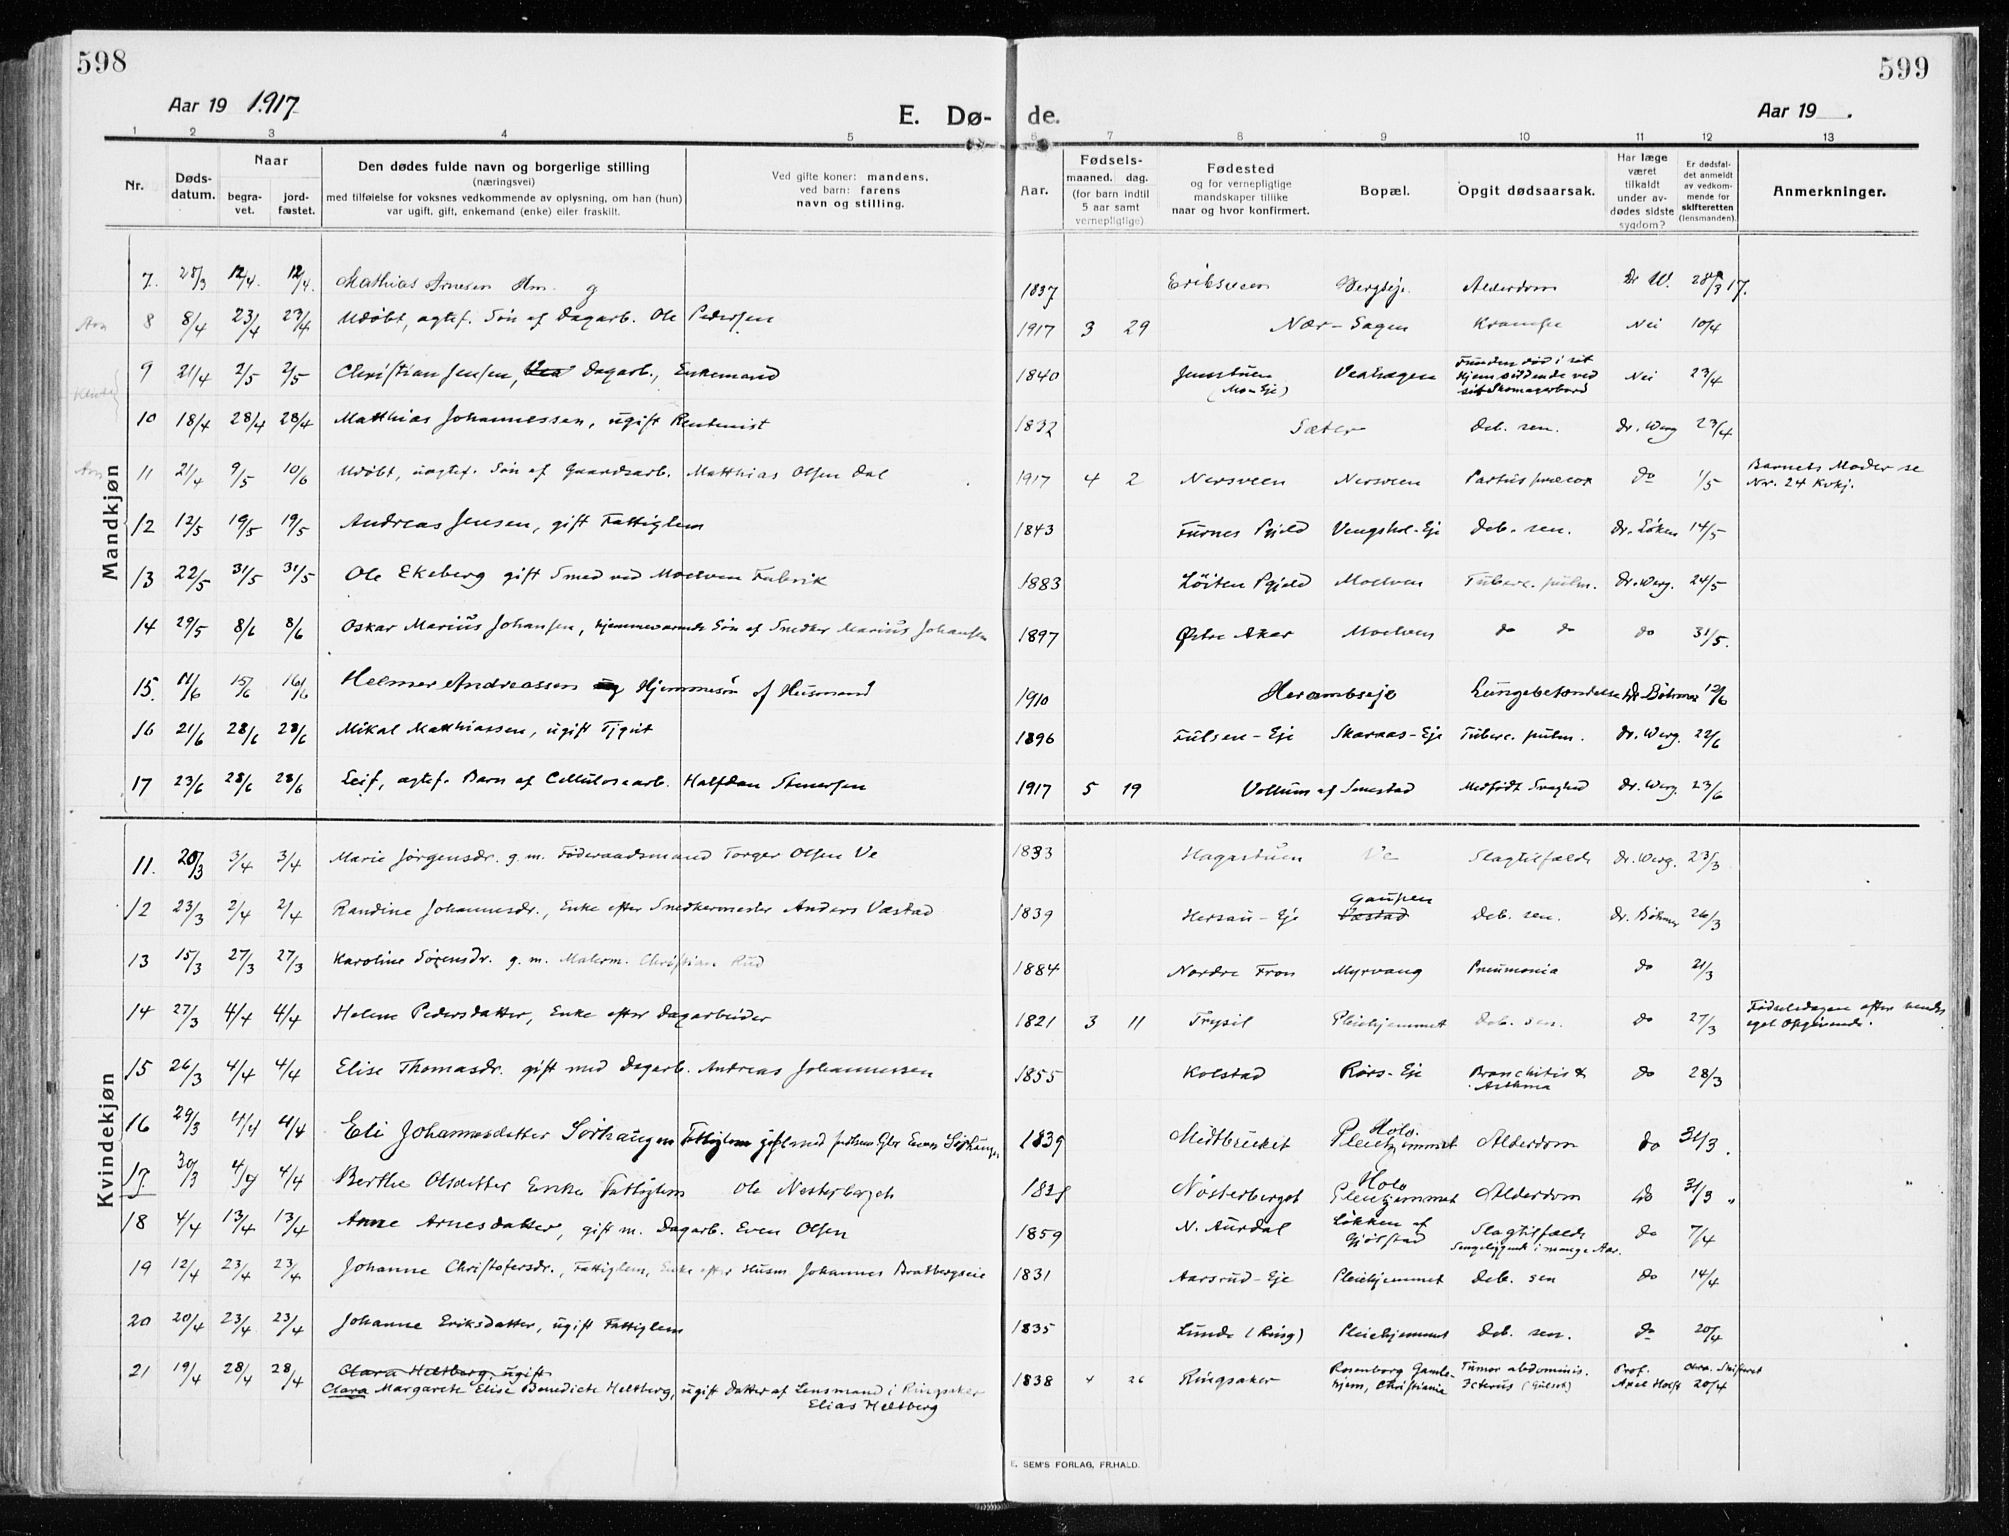 598
599
Aar 19 1917.
E. Dø- de.
Aar 19 .
1 2 3 4 5 6 7 8 9 10 11 12 13
Nr.
Døds-
datum.
Naar
begra-
vet.
jord-
fæstet.
Den dødes fulde navn og borgerlige stilling
(næringsvei)
med tilføielse for voksnes vedkommende av oplysning, om han (hun)
var ugift, gift, enkemand (enke) eller fraskilt.
Ved gifte koner: mandens,
ved barn: farens
navn og stilling.
Aar.
Fødsels-
maaned. dag.
(for barn indtil
5 aar samt
vernepligtige)
Fødested
og for vernepligtige
mandskaper tillike
naar og hvor konfirmert.
Bopæl.
Opgit dødsaarsak.
Har læge
været
tilkaldt
under av-
dødes sidste
sygdom?
Er dødsfal-
det anmeldt
av vedkom-
mende for
skifteretten
(lensmanden).
Anmerkninger.
Mandkjøn
7. 28/3 12/4. 12/4. Mathias Arnesen 1837 Alderdom Dr W. 17.
8 8/4 23/4 23/4 Udøbt, agtef. Søn af Dagarb. Ole Pedersen 1917 3 29 Nær-Sagen Krampe Nei 10/4
9 21/4 2/5 2/5 Christian Jensen, Dagarb., Enkemand 1840 Jemstuen (Mo-Eje) Funden død i sit Hjem siddende ved sit Skomagerbord Nei 23/4
10 18/4 28/4 28/4 Matthias Johannessen, ugift Rentenist 1832 Sæter Deb. sen. dr. Werg 23/4
11 21/4 9/5 10/6 Udøbt, uagtef. Søn af Gaardsarb. Matthias Olsen Dal 1917 4 2 Nersveen Nersveen Partus præcox do 1/5 Barnets Moder se Nr. 24 Kvkj.
12 12/5 19/5 19/5 Andreas Jensen, gift Fattiglem 1843 Furnes Pgjeld Vengshol-Eje Deb. sen. dr. Løken 14/5
13 22/5 31/5 31/5 Ole Ekeberg gift Smed ved Moelven Fabrik 1883 Løiten Pgjeld Moelven Tuberc. pulm. dr. Werg. 24/5
14 29/5 8/6 8/6 Oskar Marius Johansen, hjemmeværende Søn af Snedker Marius Johansen 1897 Østre Aker Moelven do do do 31/5.
15. 11/6 15/6 16/6 Helmer Andreassen Hjemmesøn af Husmand 1910 Herambseje Lungebetændelse Dr Bøhmer 12/6
16 21/6 28/6 28/6 Mikal Matthiassen, ugift Tjgut 1896 Fulsen-Eje Skaraas-Eje Tuberc. pulm. dr. Werg. 22/6
17 23/6 28/6 28/6 Leif, agtef. Barn af Cellulosearb. Halfdan Stenersen 1917 5 19 Vollum af Smestad Medfødt Svaghed dr. Werg. 23/6
Kvindekjøn
11. 20/3 3/4 3/4 Marie Jørgensdr. g. m. Føderaadsmand Torger Olsen Ve 1833 Hagastuen Ve Slagtilfælde dr. Werg. 23/3
12 23/3 2/4 2/4 Randine Johannesdr., Enke efter Snedkermester Anders Væstad 1839 Hersau-Eje Gaupen Væstad Deb. sen. dr. Bøhmer 26/3
13 15/3 27/3 27/3 Karoline Sørensdr. g. m. Malerm. Christian Rud 1884 Nordre Fron Myrvang Pneumonia do 21/3
14 27/3 4/4 4/4 Helene Pedersdatter, Enke efter Dagarbeider 1821 3 11 Trysil Pleiehjemmet Deb. sen. do 27/3 Fødselsdagen efter hendes eget Opgivende.
15 26/3 4/4 4/4 Elise Thomasdr. gift med Dagarb. Andreas Johannessen 1855 Kolstad Rørs-Eje Bronchitis & Asthma do 28/3
16 29/3 4/4 4/4 Eli Johannesdatter Sørhaugen Fattiglem gift med Even Sørhaugen 1839 Midtbruket Holo. Pleiehjemmet Alderdom do 31/3.
17. 30/3 4/4 4/4 Berthe Olsdatter Enke Fattiglem Ole Nøsterberget Nøsterberget Holo Pleiehjemmet Alderdom do 31/3 "
18 4/4 13/4 13/4 Anne Arnesdatter, gift m. Dagarb. Even Olsen 1859 N. Aurdal Løkken af Gjølstad Slagtilfælde Sengeliggende i mange Aar. do 7/4
19 12/4 23/4 23/4 Johanne Christofersdr., Fattiglem, Enke efter Husm Johannes Bratbergseie 1831 Aarsrud-Eje Pleiehjemmet Deb. sen do 14/4
20 20/4 23/4 23/4 Johanne Eriksdatter, ugift Fattiglem 1835 Lunde (Ring) Pleiehjemmet Deb. sen. do 20/4
21 19/4 28/4 28/4 Clara Heltberg, ugift
Clara Margarete Elise Benedicte Heltberg, ugift datter af Lensmand i Ringsaker Elias Heltberg 1838 4 26 Ringsaker Rosenborg Gamle-hjem, Christiania Tumor abdominis. Icterus (Gulsot) Prof. Axel Holst Chra. Skifteret 20/4
E. SEM'S FORLAG, FR.HALD.